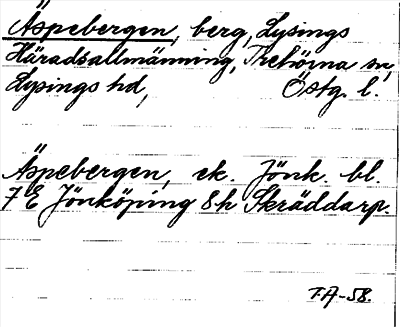 Äspebergen, berg, Lysings
Häradsallmänning, Trehörna sn,
Lysings hd, Östg. l.
Äspebergen, ek. Jönk. bl.
7 E Jönköping 8h Skräddarp.
T.A-58.